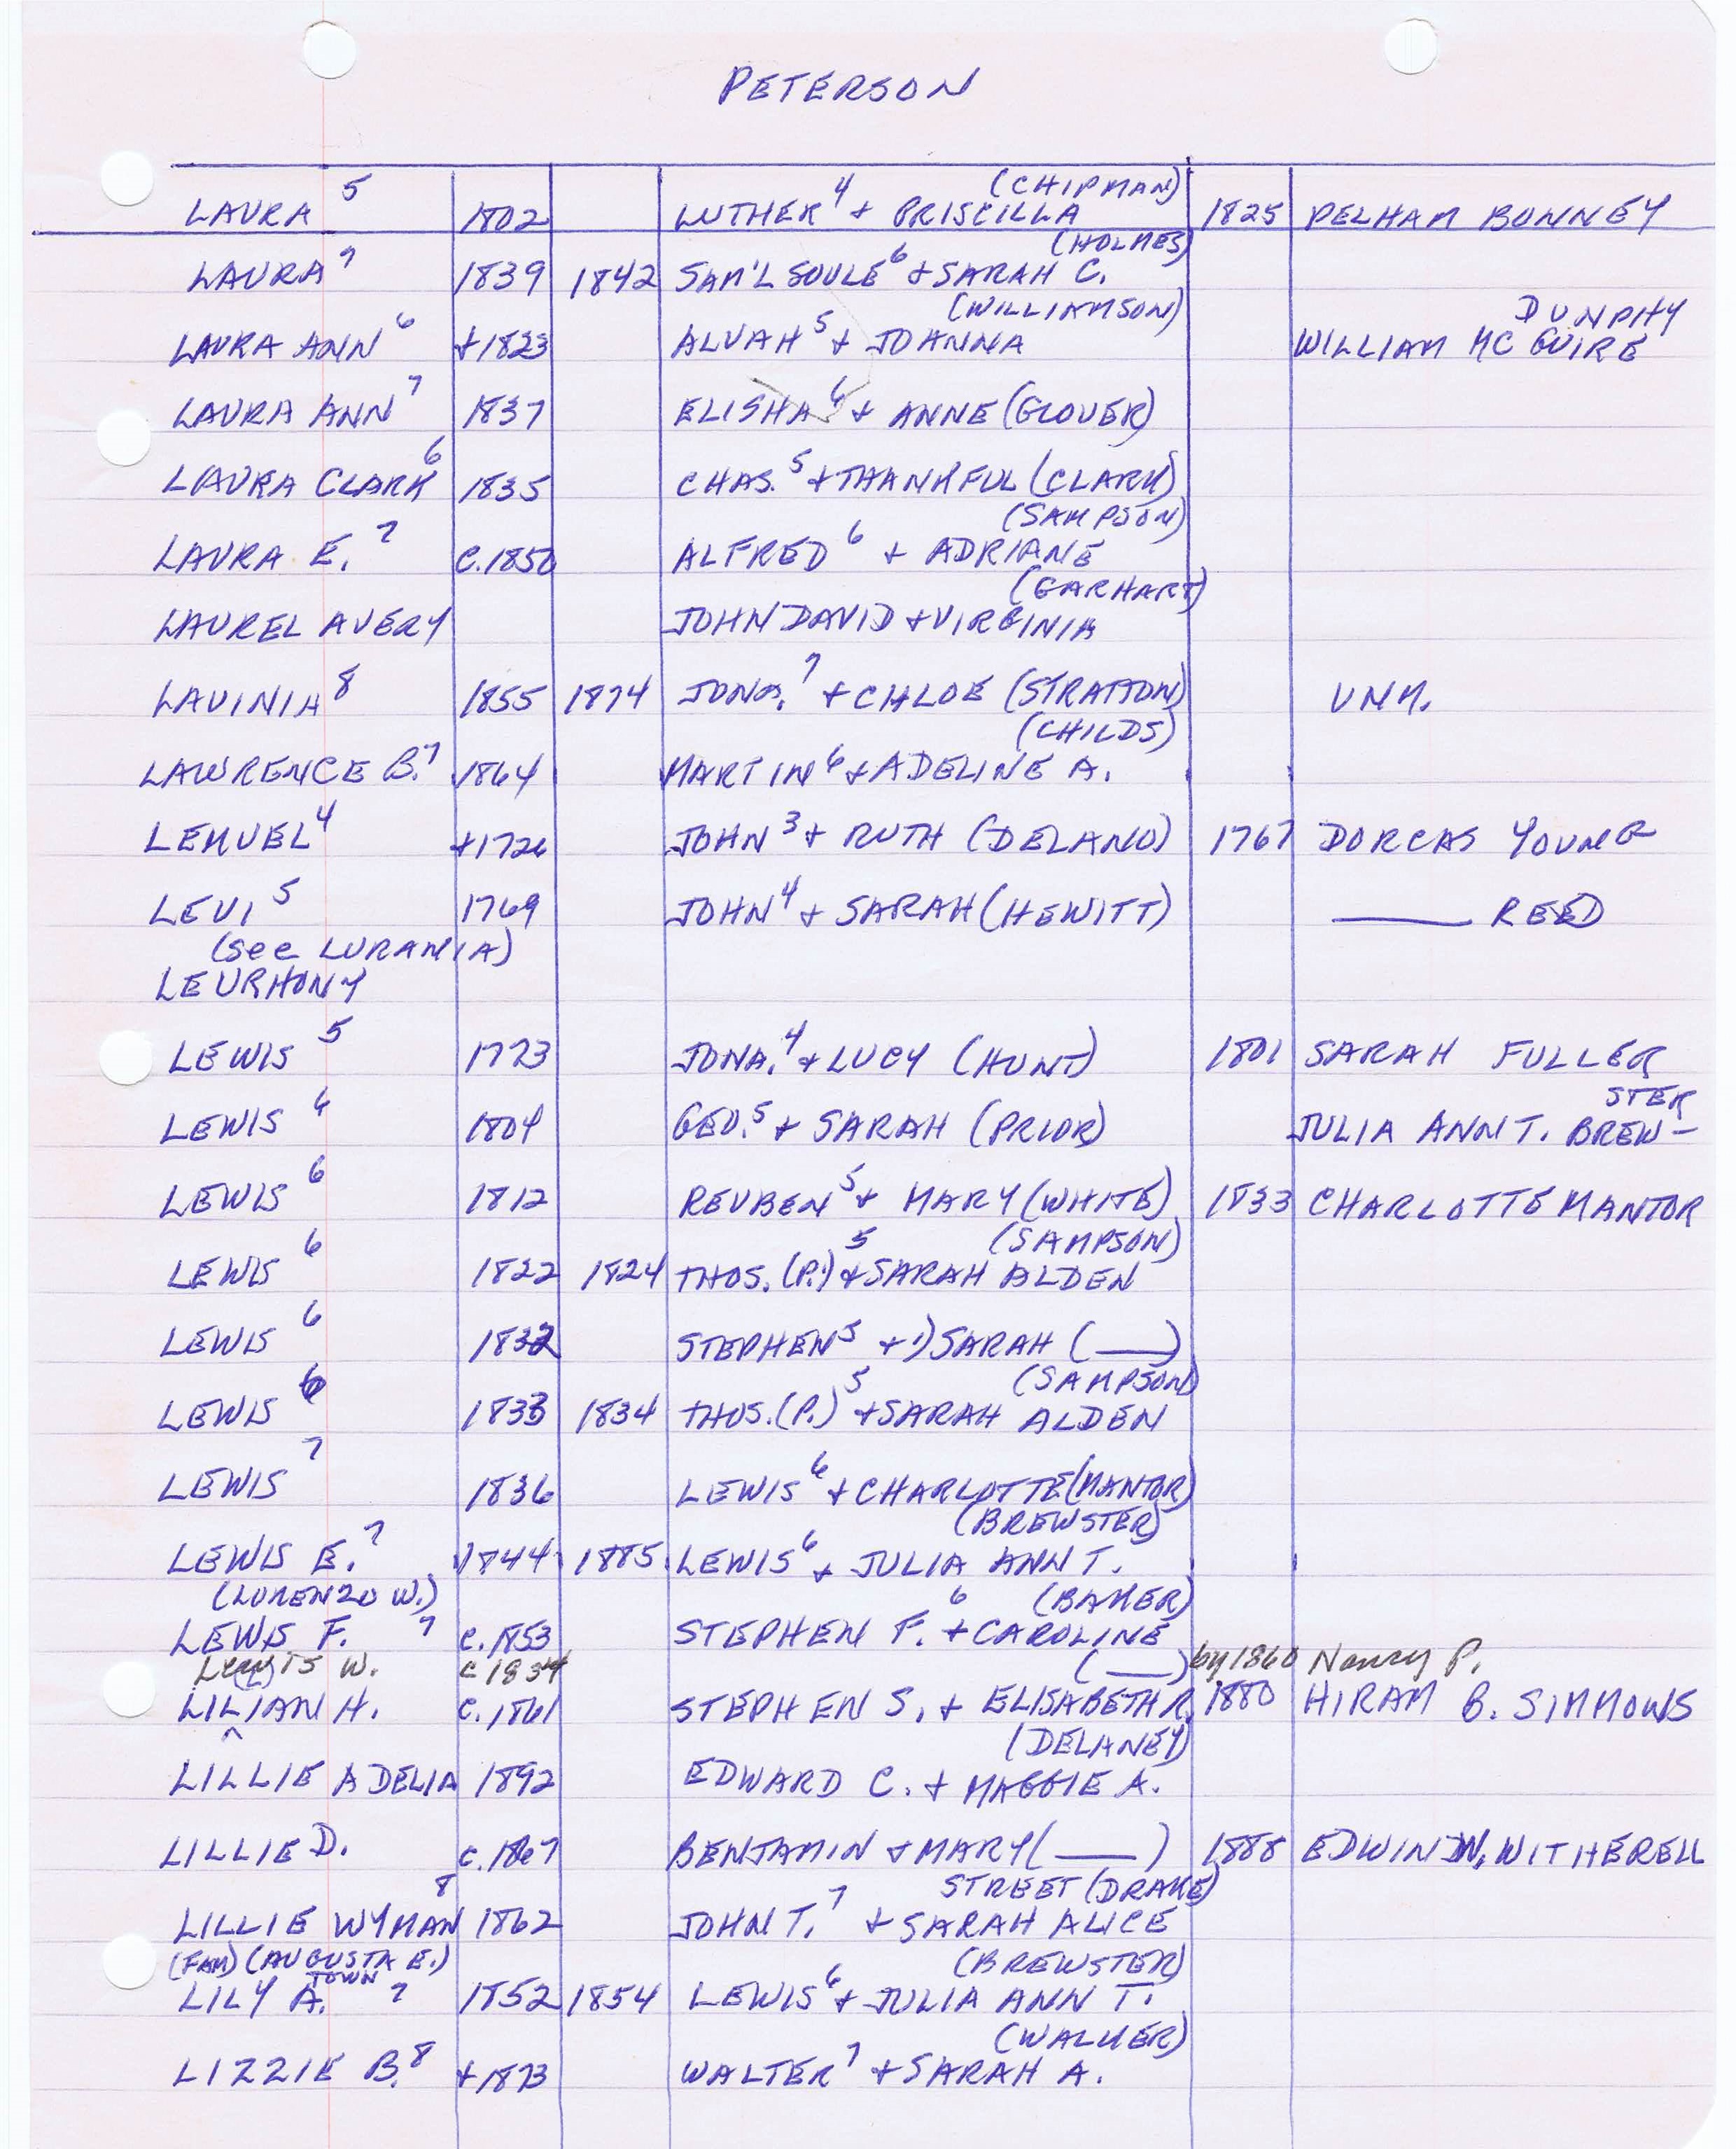 PETERSON
(CHIPMAN)
LAURA 5 1802 LUTHER 4 + PRISCILLA 1825 PELHAM BONNEY
(HOLMES)
LAURA 7 1839 1842 SAM'L SOULE 6 + SARAH C.
(WILLIAMSON) DUNPHY
LAURA ANN 6 +1823 ALVAH 5 + JOANNA WILLIAM MC GUIRE
LAURA ANN 7 1837 ELISHA 6 + ANNE (GLOVER)
LAURA CLARK 6 1835 CHAS. 5 + THANKFUL (CLARK)
(SAMPSON)
LAURA E. 7 C. 1850 ALFRED 6 + ADRIANE
(EARHART)
LAUREL AVERY JOHN DAVID + VIRGINIA
LAVINIA 8 1855 1874 JONA. 7 + CHLOE (STRATTON) UNM.
(CHILDS)
LAWRENCE B. 7 1864 MARTIN 6 + ADELINE A.
LEMUEL 4 +1726 JOHN 3 + RUTH (DELANO) 1767 DORCAS YOUNG
LEVI 5 1769 JOHN 4 + SARAH (HEWITT) —— REED
(see LURANIA)
LEURHONY
LEWIS 5 1773 JONA. 4 + LUCY (HUNT) 1801 SARAH FULLER
STER
LEWIS 6 1804 GEO. 5 + SARAH (PRIOR) JULIA ANN T. BREW-
LEWIS 6 1812 REUBEN 5 + MARY (WHITE) 1833 CHARLOTTE MANTOR
(SAMPSON)
LEWIS 6 1822 1824 THOS. (P.) 5 + SARAH ALDEN
LEWIS 6 1832 STEPHEN 5 + 1) SARAH (___)
(SAMPSON)
LEWIS 6 1833 1834 THOS. (P.) 5 + SARAH ALDEN
LEWIS 7 1836 LEWIS 6 + CHARLOTTE (MANTOR)
(BREWSTER)
LEWIS E. 7 1844 1885 LEWIS 6 + JULIA ANN T.
(LORENZO W.) (BAKER)
LEWIS F. 7 C. 1853 STEPHEN F. 6 + CAROLINE
Lewis W. c 1834 (___) by 1860 Nancy P.
(L)
LILIAN H. C. 1861 STEPHEN S. + ELISABETH R. 1880 HIRAM B. SIMMONS
^
(DELANEY)
LILLIE ADELIA 1892 EDWARD C. + MAGGIE A.
LILLIE D. C. 1867 BENJAMIN + MARY (___) 1888 EDWIN W. WITHERELL
STREET (DRAKE)
LILLIE WYMAN 8 1862 JOHN T. 7 + SARAH ALICE
(FAM) (AUGUSTA E.) (BREWSTER)
TOWN
LILY A. 7 1852 1854 LEWIS 6 + JULIA ANN T.
(WALKER)
LIZZIE B. 8 +1873 WALTER 7 + SARAH A.